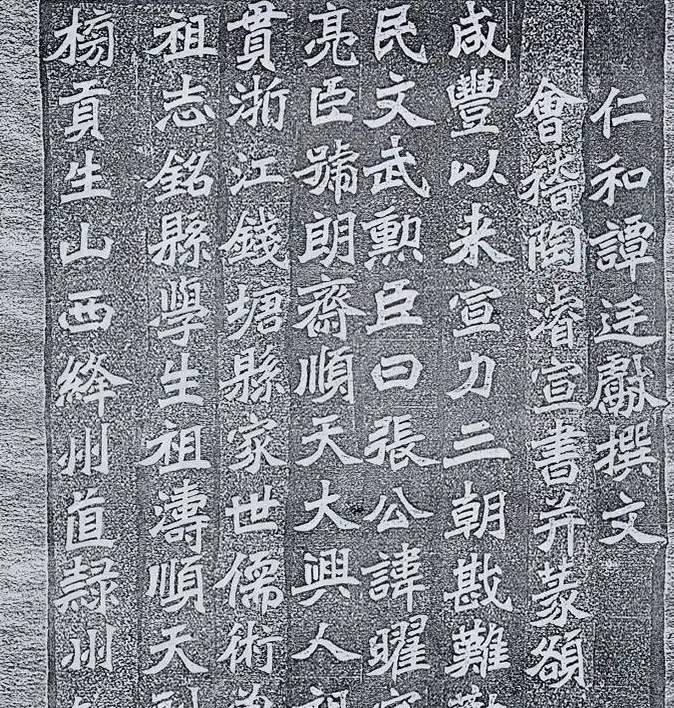 仁和譚廷獻撰文
會稽陶濬宣書并篆額
咸豐以来宣力三朝戡難
民文武勳臣曰張公諱曜
亮臣號朗齋順天大興人祖
貫浙江錢塘縣家世儒術
祖志銘縣學生祖濤順天
榜貢生山西絳州直隸州